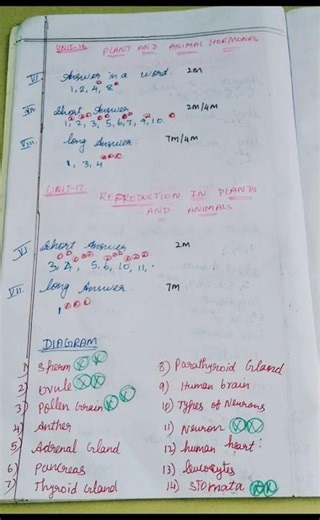 UNIT-16 PLANT AND ANIMAL HORMONES
VI Answer in a word. 2M
1, 2, 4, 8
VII. Short Answer 2M/4M
1, 2, 3, 5, 6, 7, 9, 10
VIII. long Answer 7M/4M
1, 3, 4
UNIT-17 REPRODUCTION IN PLANTS
AND ANIMALS
V Short Answer 2M
3, 4, 5, 6, 10, 11,
VII. long Answer 7M
1
DIAGRAM
1) Sperm
2) Ovule
3) Pollen Grain
4) Anther
5) Adrenal Gland
6) Pancreas
7) Thyroid Gland
8) Parathyroid Gland
9) Human brain
10) Types of Neurons
11) Neuron
12) human heart:
13) leucocytes
14) Stomata